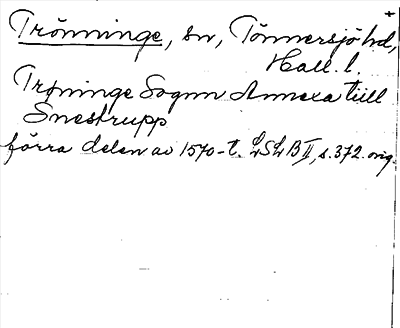 Trönninge, sn, Tönnersjö hd,
Hall. l.
Trøninge Sognn Annexa till
Snestrupp
förra delen av 1570-t. LSLB II, s. 372. orig.